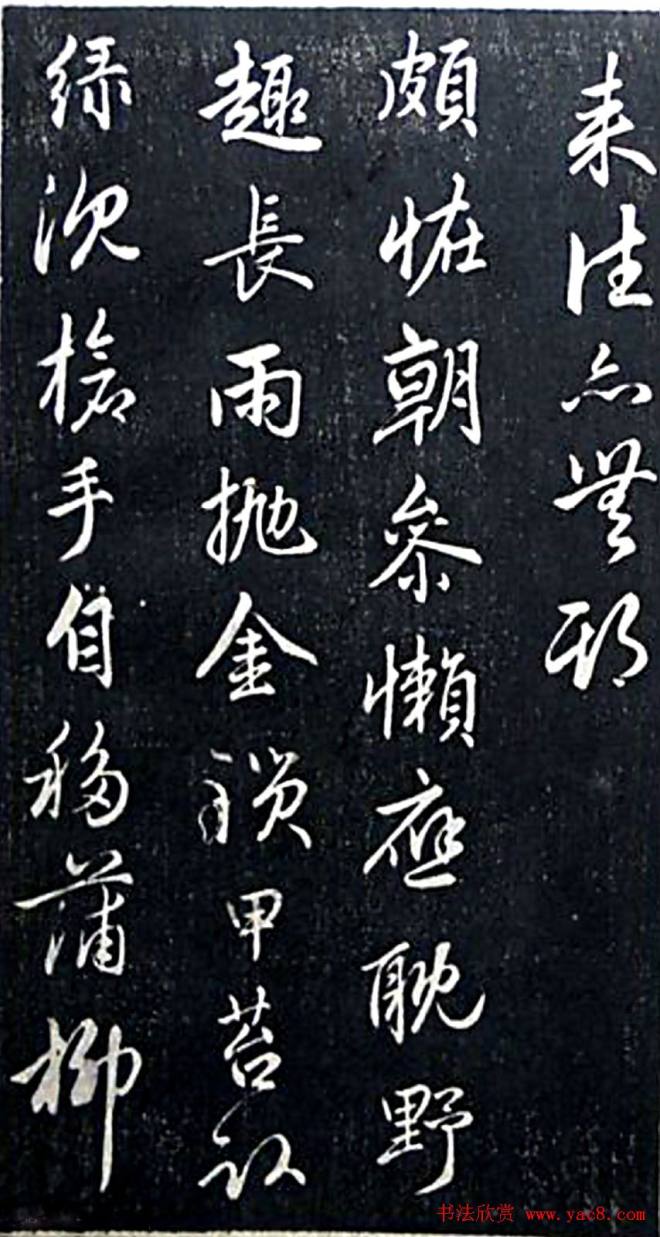 来往亦無期
頗恠朝叅懶應耽野
趣長雨抛金鎖甲苔臥
緑沉槍手自移蒲柳
书法欣赏 www.yac8.com